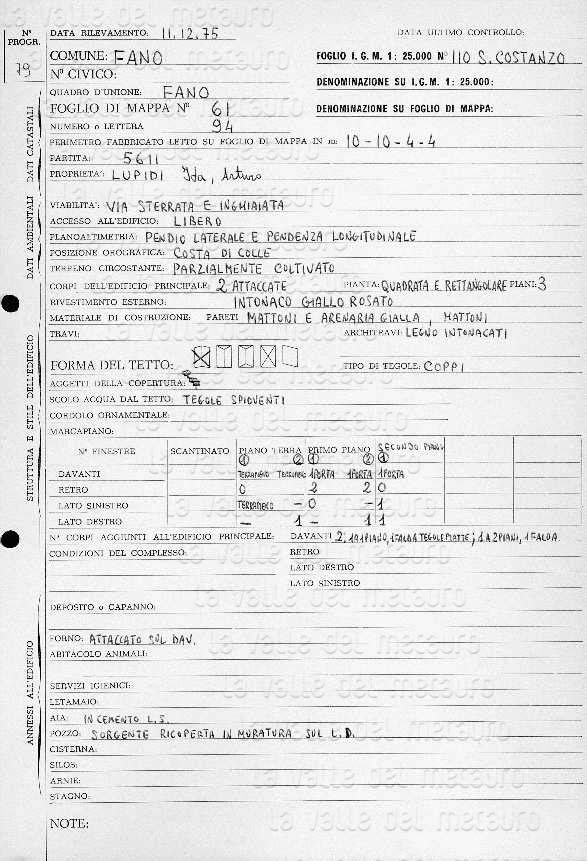 N° PROGR.
79
DATA RILEVAMENTO: 11.12.75
DATA ULTIMO CONTROLLO:
COMUNE: FANO
FOGLIO I.G.M. 1: 25.000 N° 110 S. COSTANZO
N° CIVICO:
DENOMINAZIONE SU I.G.M. 1: 25.000:
QUADRO D'UNIONE: FANO
FOGLIO DI MAPPA N° 61
DENOMINAZIONE SU FOGLIO DI MAPPA:
NUMERO o LETTERA 94
PERIMETRO FABBRICATO LETTO SU FOGLIO DI MAPPA IN m: 10-10-4-4
PARTITA: 5611
PROPRIETA': LUPIDI Ida, Arturo
DATI CATASTALI
VIABILITA': VIA STERRATA E INGHIAIATA
ACCESSO ALL'EDIFICIO: LIBERO
PLANOALTIMETRIA: PENDIO LATERALE E PENDENZA LONGITUDINALE
POSIZIONE OROGRAFICA: COSTA DI COLLE
TERRENO CIRCOSTANTE: PARZIALMENTE COLTIVATO
DATI AMBIENTALI
CORPI DELL'EDIFICIO PRINCIPALE: 2 ATTACCATE PIANTA: QUADRATA E RETTANGOLARE PIANI: 3
RIVESTIMENTO ESTERNO: INTONACO GIALLO ROSATO
MATERIALE DI COSTRUZIONE: PARETI MATTONI E ARENARIA GIALLA, MATTONI
TRAVI: ARCHITRAVI: LEGNO INTONACATI
FORMA DEL TETTO: TIPO DI TEGOLE: COPPI
AGGETTI DELLA COPERTURA:
SCOLO ACQUA DAL TETTO: TEGOLE SPIOVENTI
CORDOLO ORNAMENTALE:
MARCAPIANO:
STRUTTURA E STILE DELL'EDIFICIO
N° FINESTRE SCANTINATO PIANO TERRA PRIMO PIANO SECONDO PIANO
1 2 1 2 1
DAVANTI TERRAPIENO TERRAPIENO 1 PORTA 1 PORTA 1 PORTA
RETRO 0 2 2 0
LATO SINISTRO TERRAPIENO - 0 - 1
LATO DESTRO - 1 - 1 1
N° CORPI AGGIUNTI ALL'EDIFICIO PRINCIPALE: DAVANTI 2: 1 A 1 PIANO, 1 FALDA TEGOLE PIATTE; 1 A 2 PIANI, 1 FALDA.
CONDIZIONI DEL COMPLESSO: RETRO
LATO DESTRO
LATO SINISTRO
DEPOSITO o CAPANNO:
FORNO: ATTACCATO SUL DAV.
ABITACOLO ANIMALI:
SERVIZI IGIENICI:
LETAMAIO:
AIA: IN CEMENTO L.S.
POZZO: SORGENTE RICOPERTA IN MURATURA SUL L.D.
CISTERNA:
SILOS:
ARNIE:
STAGNO:
ANNESSI ALL'EDIFICIO
NOTE:
la valle del metauro